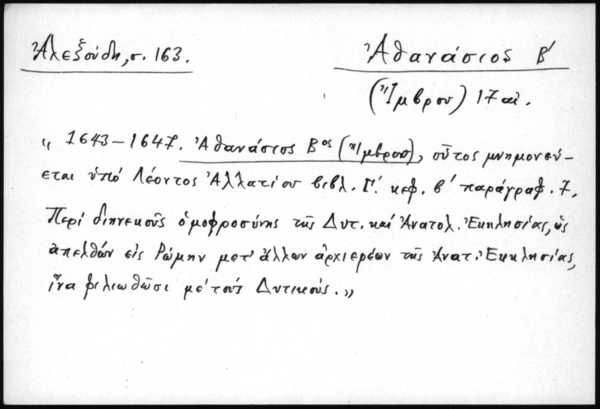 Ἀλεξούδη, σ. 163.
Ἀθανάσιος Β'
(Ἴμβρου) 17 αἰ.
« 1643 – 1647. Ἀθανάσιος Βος (Ἴμβρου), οὗτος μνημονεύ-
εται ὑπό Λέοντος Ἀλλατίου βιβλ. Γ'. κεφ. β' παράγραφ. 7.
Περί διηνεκοῦς ὁμοφροσύνης τῆς Δυτ. καί Ἀνατολ. Ἐκκλησίας, ὡς
ἀπελθών εἰς Ρώμην μετ' ἄλλων ἀρχιερέων τῆς Ἀνατ. Ἐκκλησίας,
ἵνα φιλιωθῶσι μέ τούς Δυτικούς. »